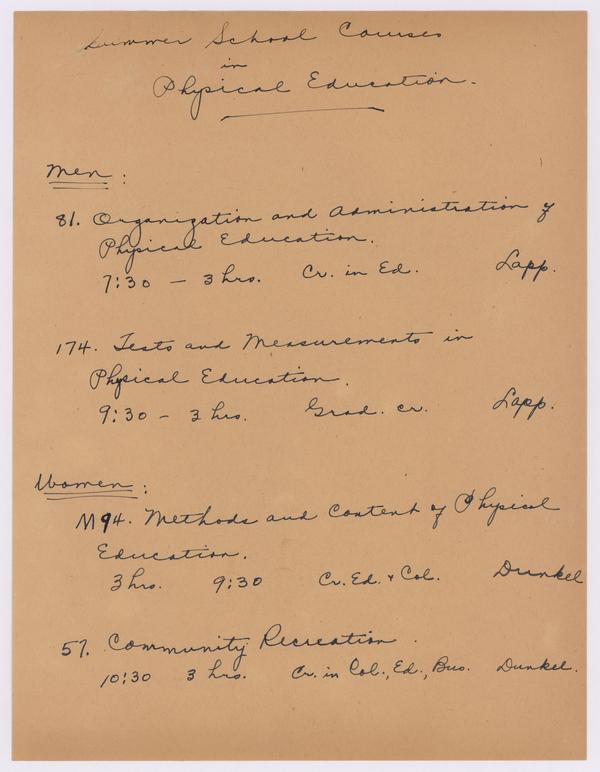 Summer School Courses
in
Physical Education.
Men:
81. Organization and Administration of
Physical Education.
7:30 — 3 hrs. Cr. in Ed. Lapp.
174. Tests and Measurements in
Physical Education.
9:30 – 3 hrs. Grad. cr. Lapp.
Women:
M94. Methods and Content of Physical
Education.
3 hrs. 9:30 Cr. Ed. + Col. Dunkel
57. Community Recreation.
10:30 3 hrs. Cr. in Col., Ed., Bus. Dunkel.